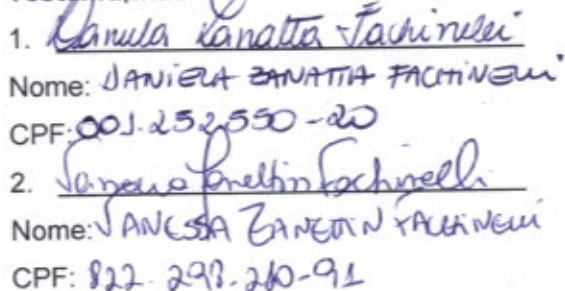 1. Daniela Zanatta Fachinelli
Nome: DANIELA ZANATTA FACHINELLI
CPF: 001.252.550-20
2. Vanessa Zanettin Fachinelli
Nome: VANESSA ZANETTIN FACHINELLI
CPF: 822.298.260-91